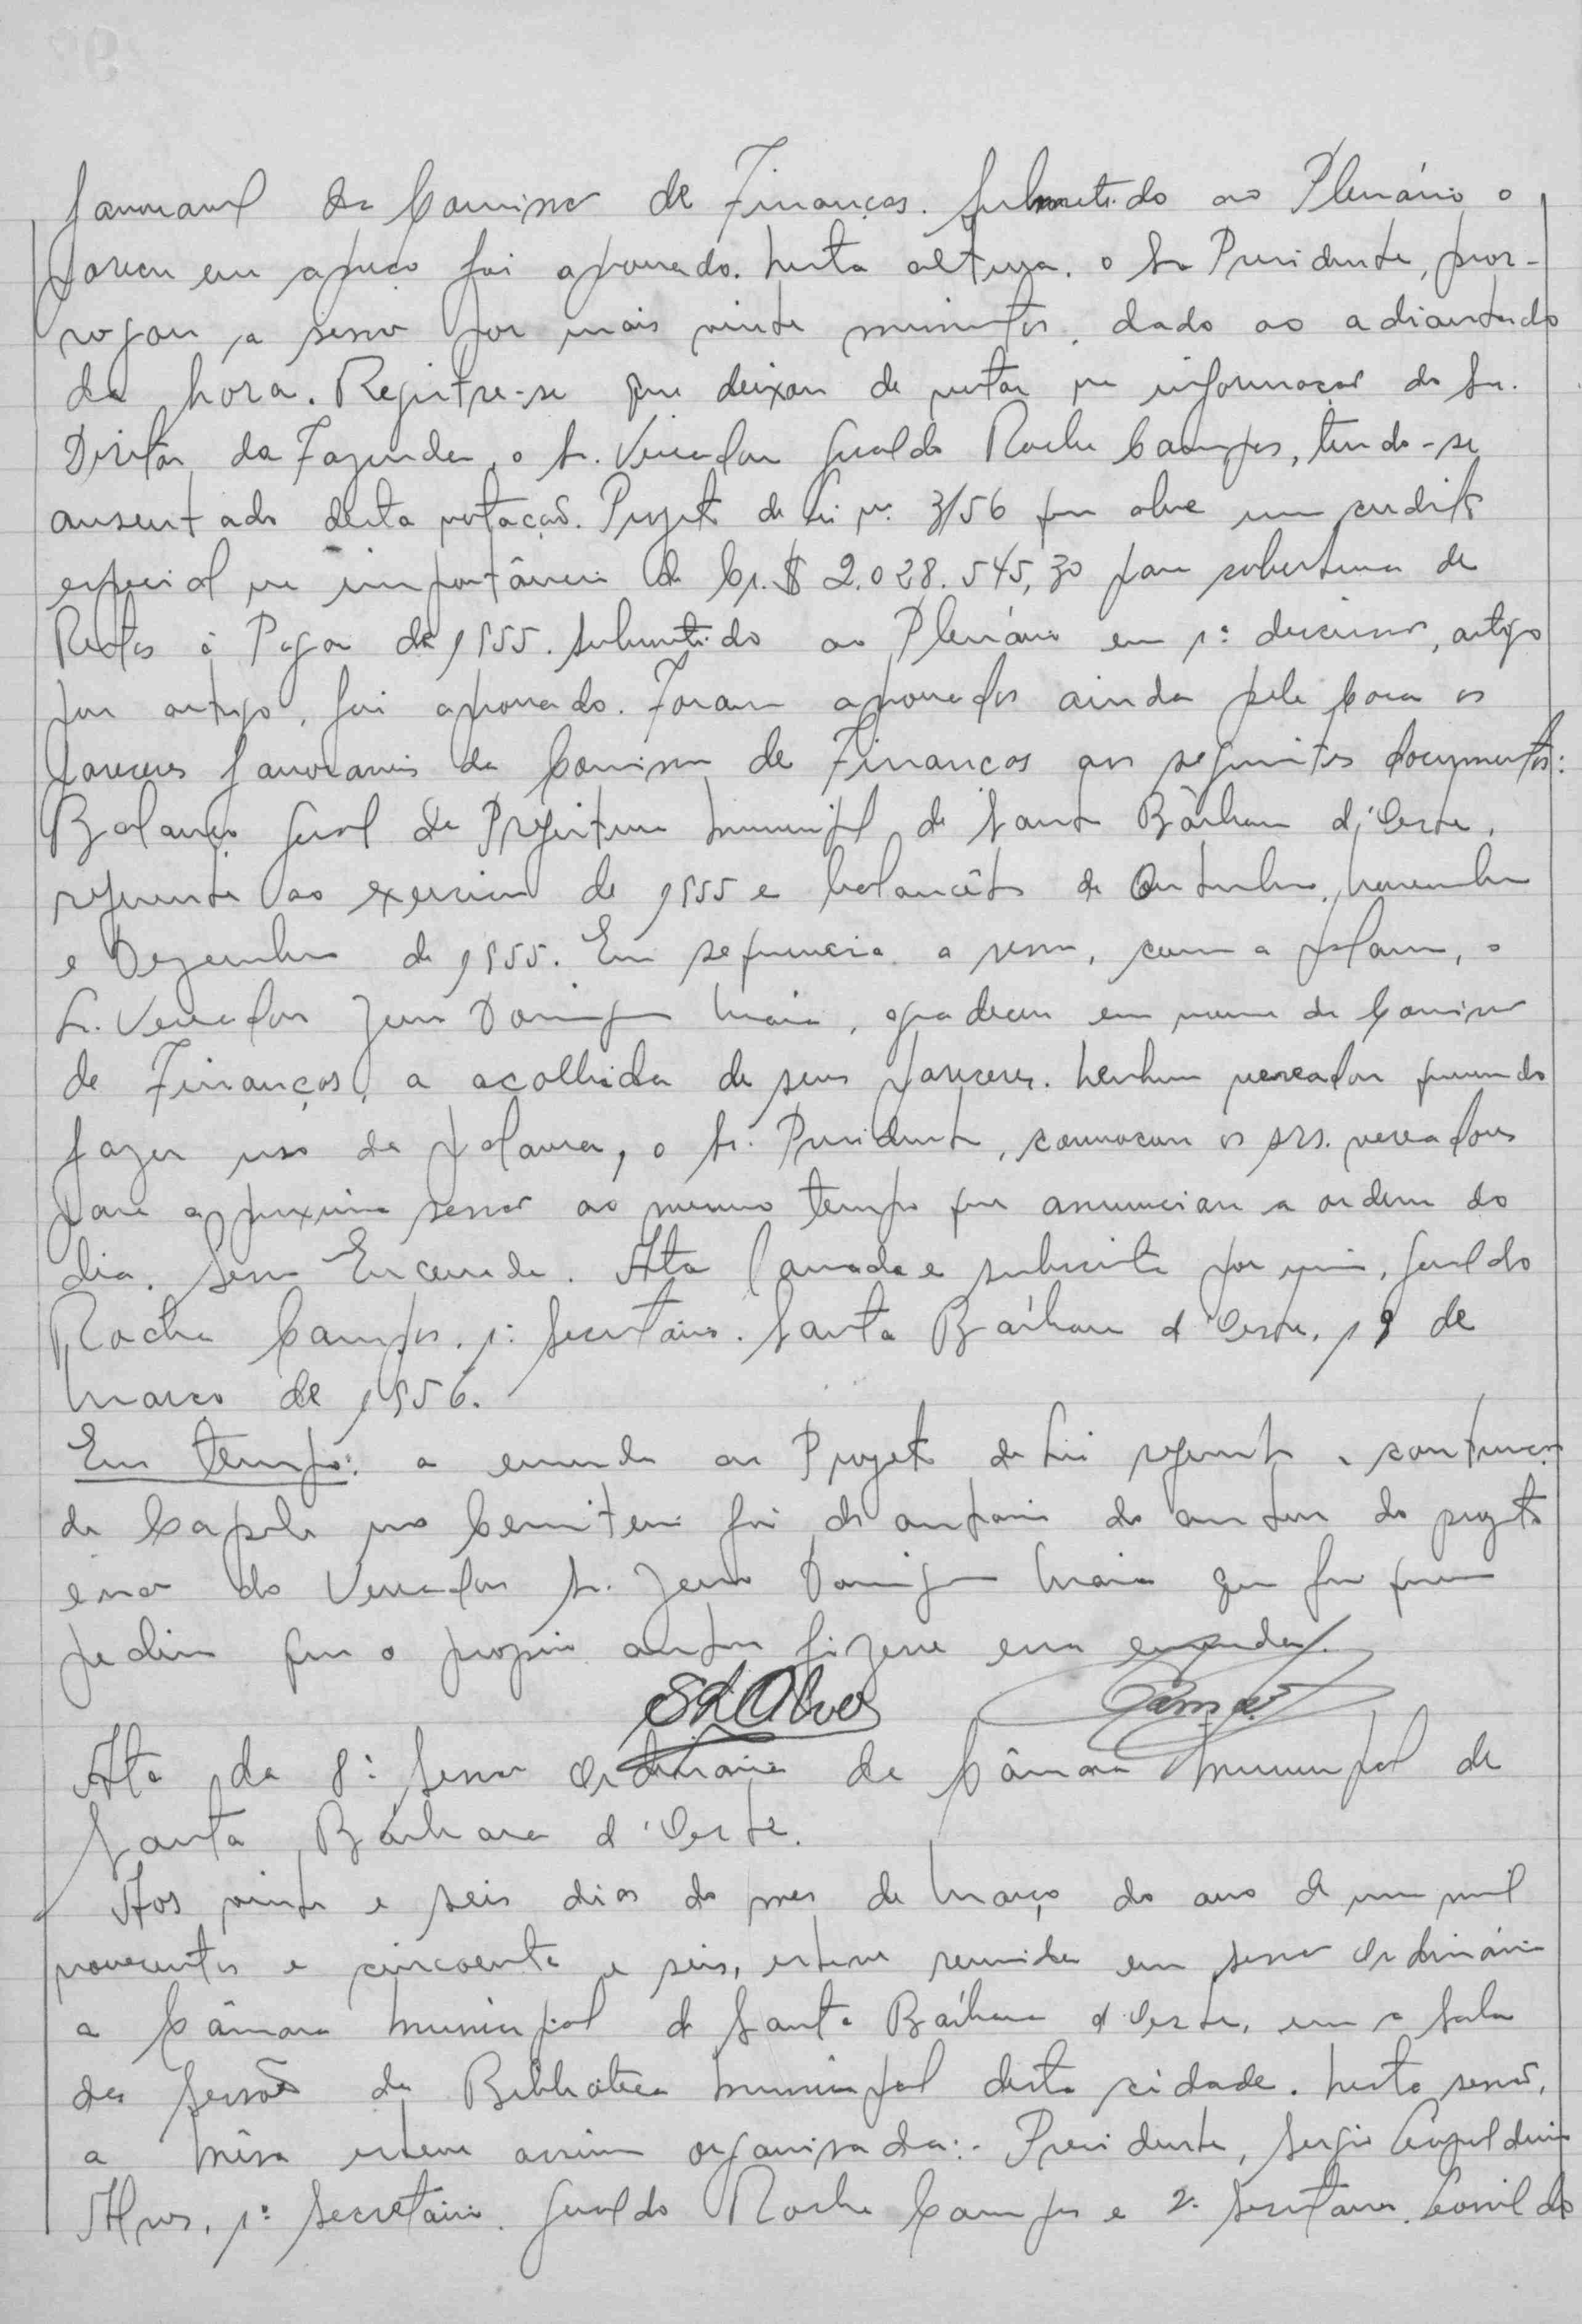 favoravel da Comissão de Finanças. Submetido ao Plenário o
parecer em apreço foi aprovado. Nesta altura, o Sr Presidente, pror-
rogou a sessão por mais vinte minutos, dado ao adiantado
da hora. Registre-se que deixou de votar na informação do Sr.
Diretor da Fazenda, o Sr. Vereador Geraldo Rocha Campos, tendo-se
ausentado desta votação. Projeto de Lei nº 3/56 que abre um credito
especial na importância de Cr.$ 2.028.545,30 para cobertura de
Restos à Pagar de 1955. Submetido ao Plenário em 1ª discussão, artigo
por artigo, foi aprovado. Foram aprovados ainda pela Casa os
pareceres favoraveis da Comissão de Finanças aos seguintes documentos:
Balanço Geral da Prefeitura Municipal de Santa Bárbara d'Oeste,
referente ao exercicio de 1955 e balancêtes de Outubro, Novembro
e Dezembro de 1955. Em sequencia a sessão, com a palavra, o
Sr. Vereador Domingos Maia, agradeceu em nome da Comissão
de Finanças, a acolhida de seus pareceres. Nenhum vereador querendo
fazer uso da palavra, o Sr. Presidente, convocou os srs. vereadores
para a proxima sessão ao mesmo tempo que anunciou a ordem do
dia. Sessão Encerrada. Ata lavrada e subscrita por mim, Geraldo
Rocha Campos, 1º Secretário. Santa Bárbara d'Oeste, 19 de
Março de 1956.
Em tempo: a emenda ao Projeto de Lei referente a construção
da Capela no Cemiterio foi de autoria do autor do projeto
e não do Vereador Sr. Domingos Maia que
pediu que o proprio autor fizesse essa emenda.
SLAlves
Ata da 8ª Sessão Ordinaria da Câmara Municipal de
Santa Bárbara d'Oeste.
Aos vinte e seis dias do mes de Março do ano de um mil
novecentos e cincoenta e seis, esteve reunida em sessão Ordinária
a Câmara Municipal de Santa Bárbara d'Oeste, em a Sala
das Sessões da Biblioteca Municipal desta cidade. Nesta sessão,
a Mêsa esteve assim organisada:- Presidente, Sergio Leopoldino
Alves, 1º Secretário Geraldo Rocha Campos e 2º Secretario